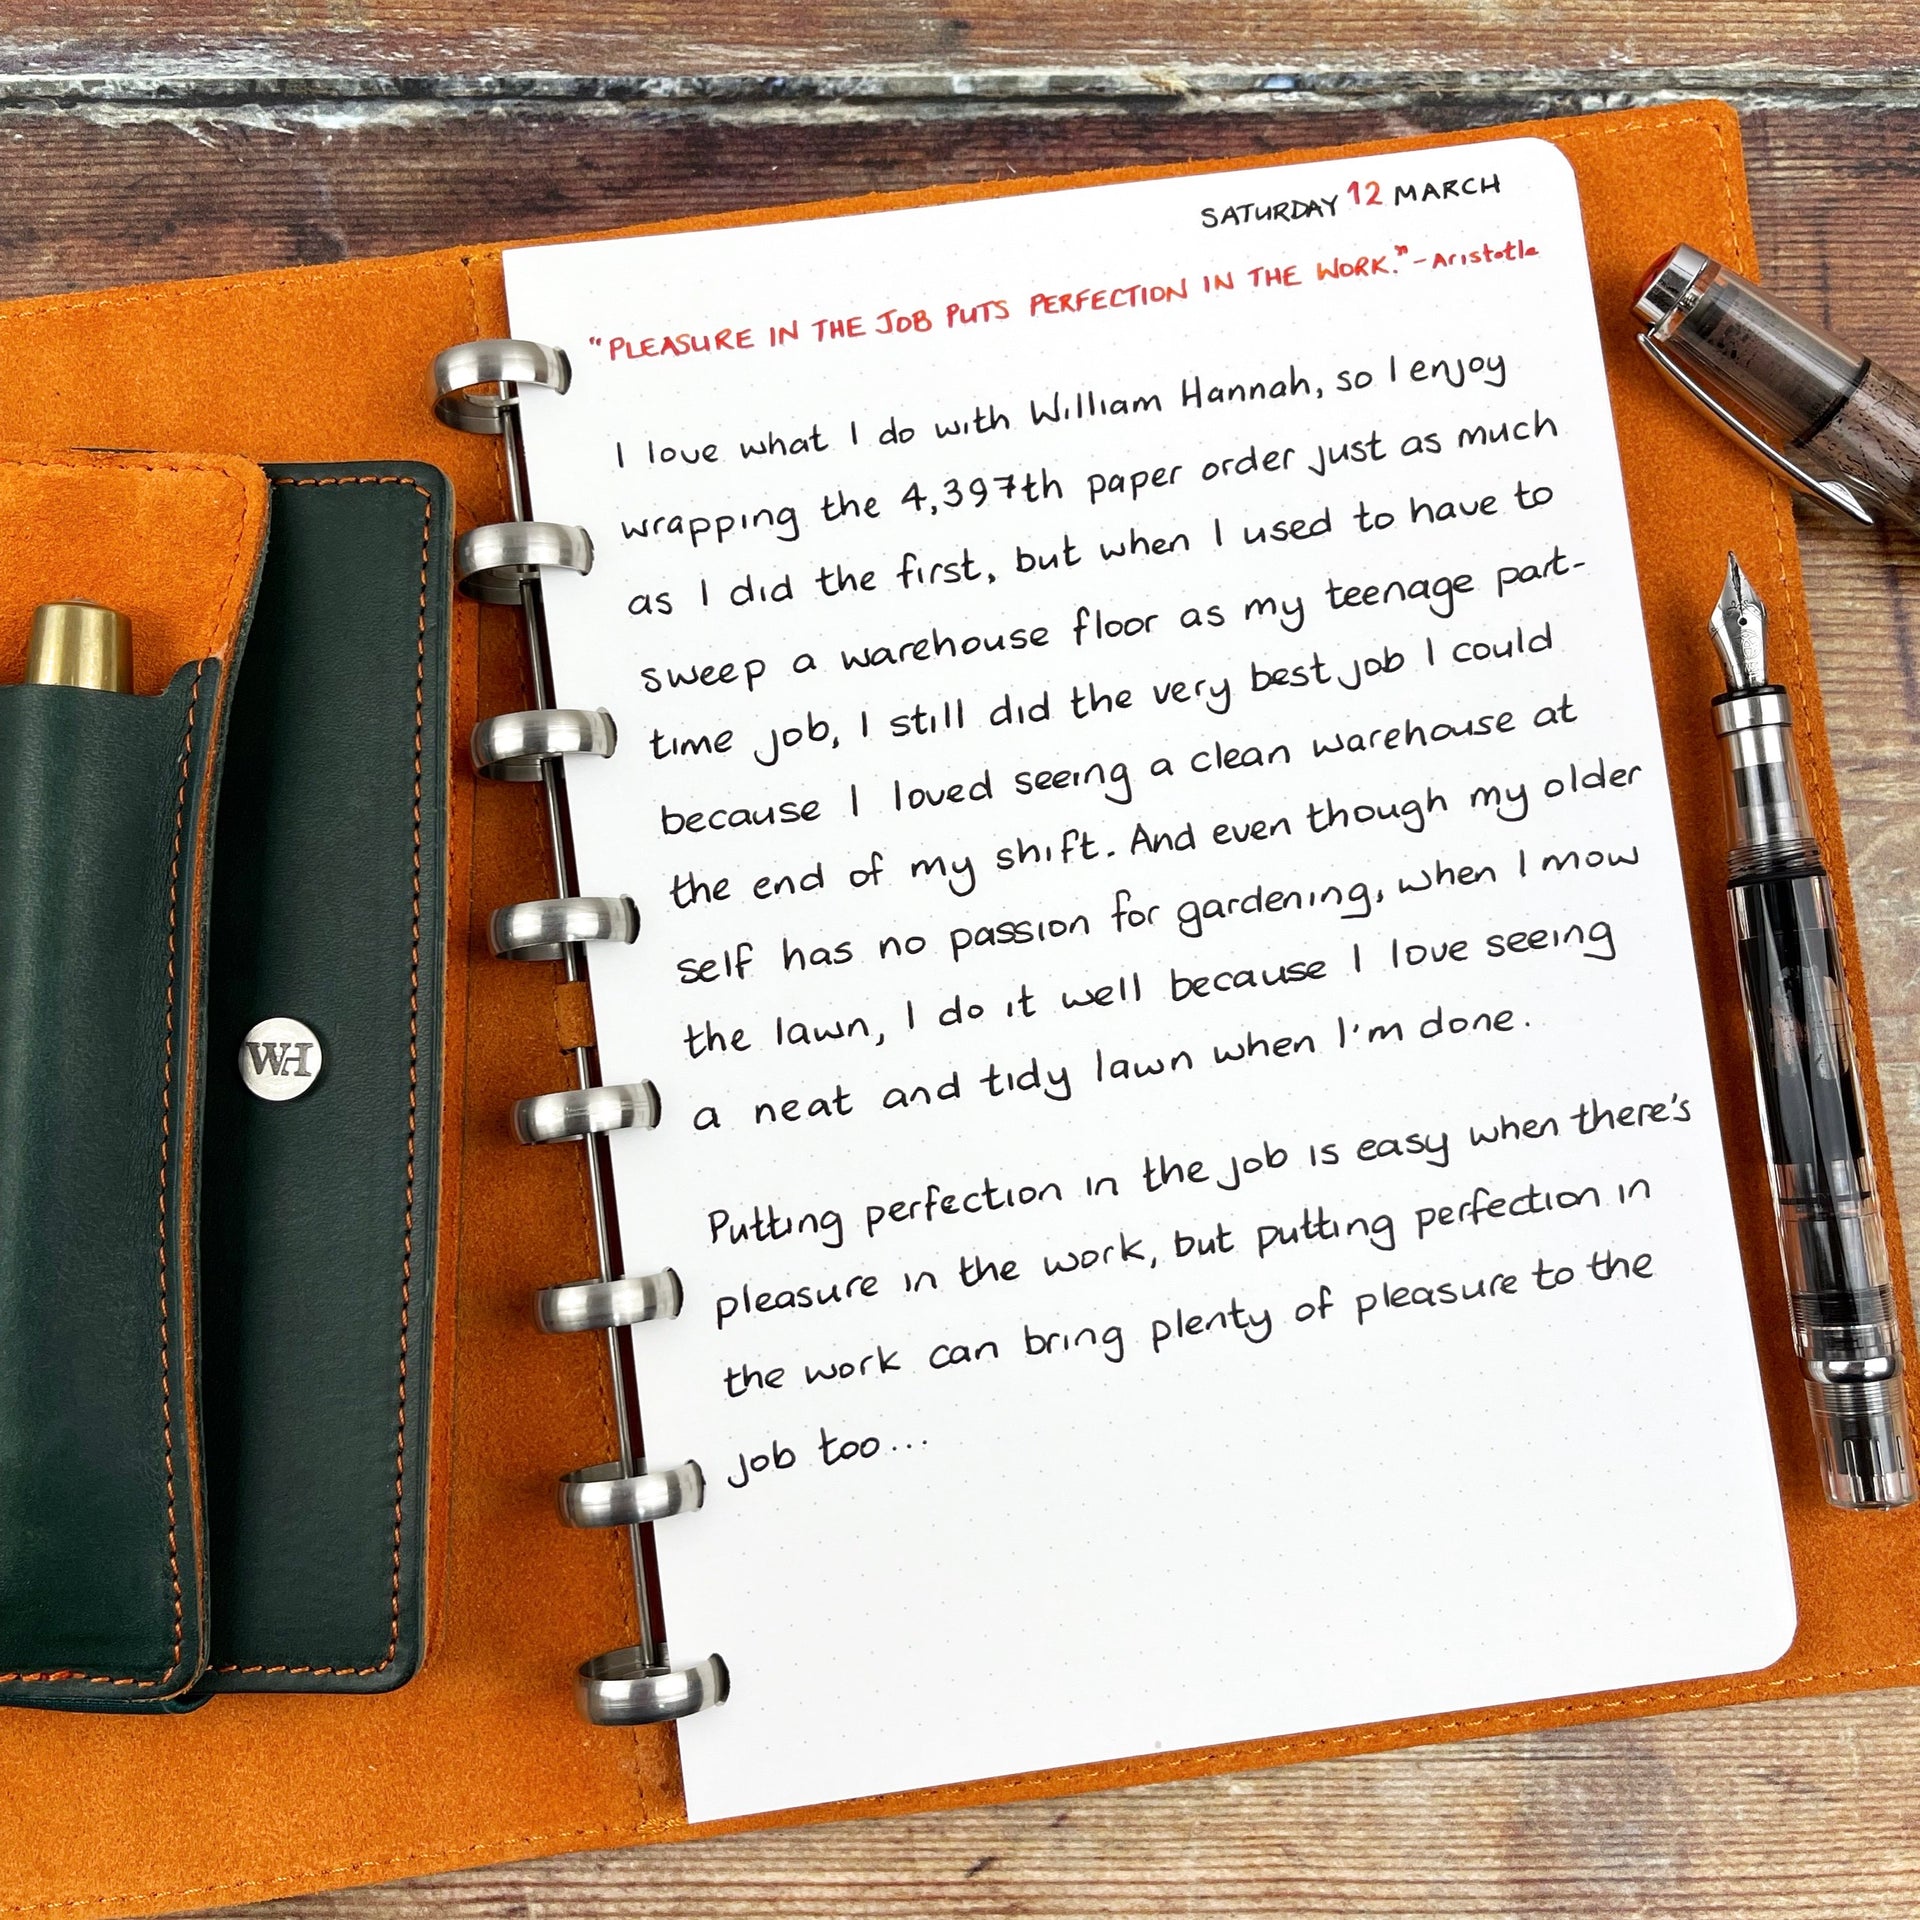 SATURDAY 12 MARCH
"PLEASURE IN THE JOB PUTS PERFECTION IN THE WORK." - Aristotle
I love what I do with William Hannah, so I enjoy
wrapping the 4,397th paper order just as much
as I did the first, but when I used to have to
sweep a warehouse floor as my teenage part-
time job, I still did the very best job I could
because I loved seeing a clean warehouse at
the end of my shift. And even though my older
self has no passion for gardening, when I mow
the lawn, I do it well because I love seeing
a neat and tidy lawn when I'm done.
Putting perfection in the job is easy when there's
pleasure in the work, but putting perfection in
the work can bring plenty of pleasure to the
job too...
WH